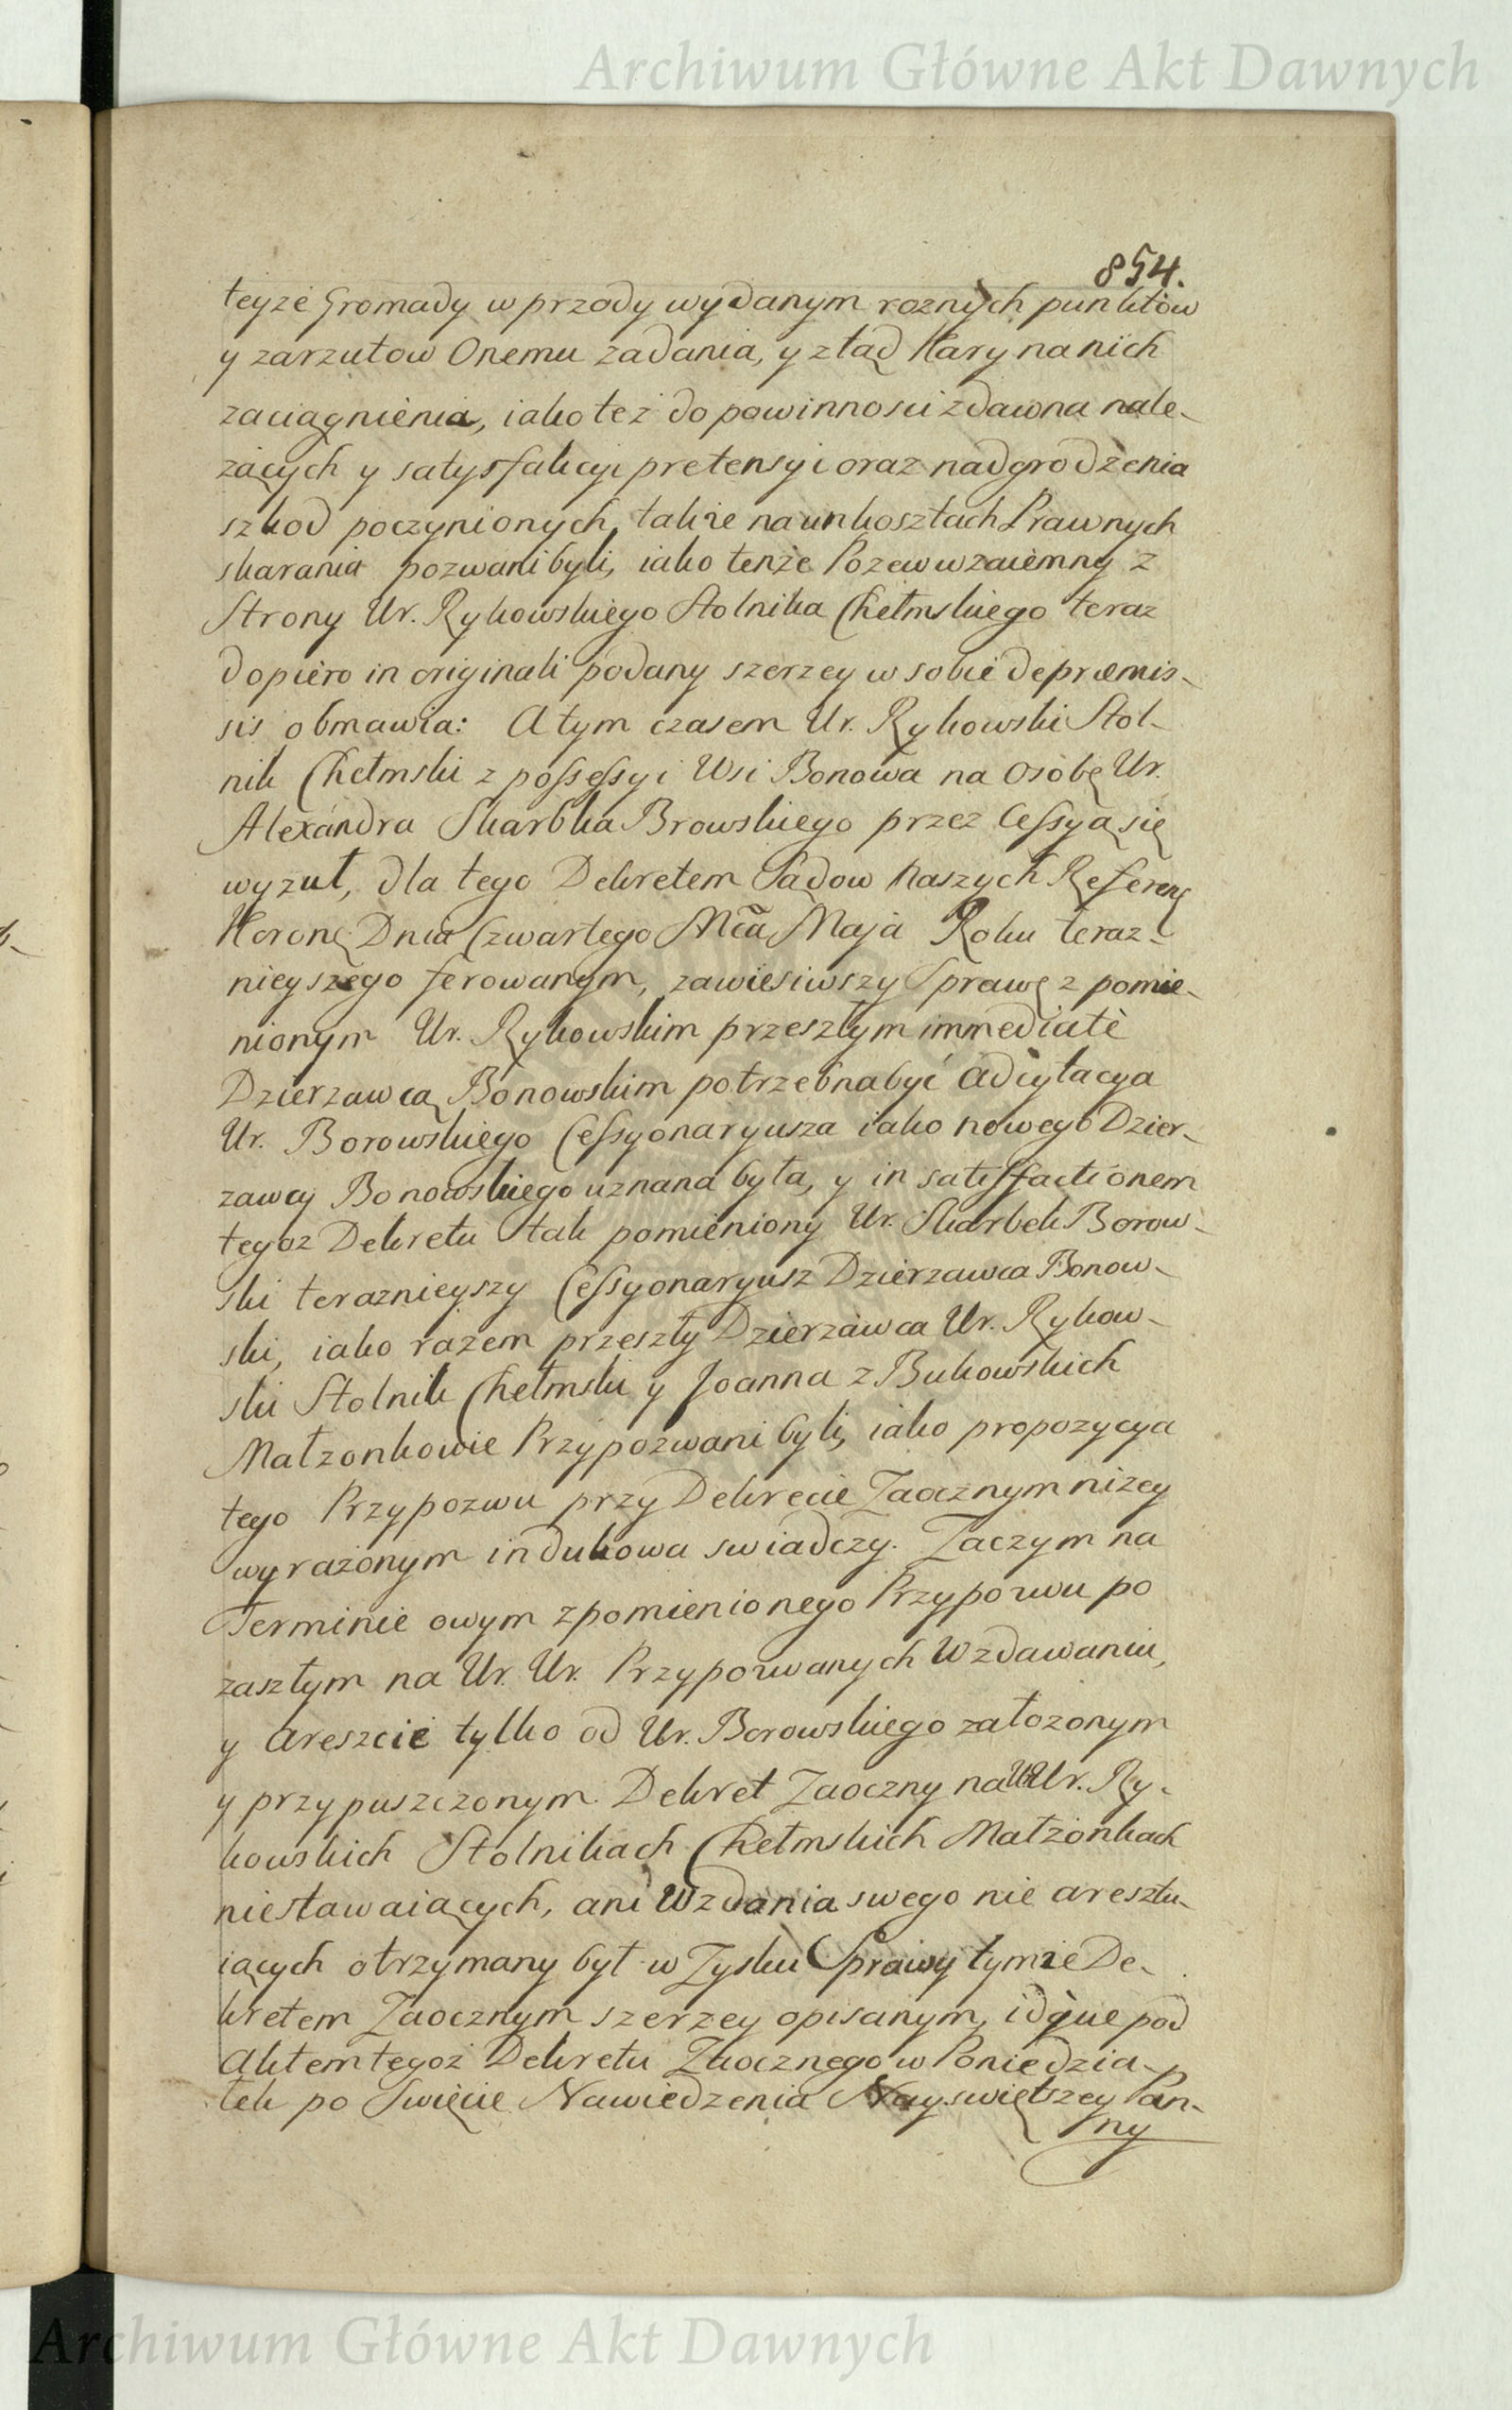 Archiwum Główne Akt Dawnych
854.
teyże Gromady wprzody wydanym roznych punktow
y zarzutow Onemu zadania, y ztąd Kary na nich
zaciągnienia, iako też do powinnosci zdawna nale-
żących y satysfakcyi pretensyi oraz nadgrodzenia
szkod poczynionych, także na unkosztach Prawnych
skarania pozwani byli, iako tenże Pozew wzaiemny z
Strony Ur. Rykowskiego Stolnika Chełmskiego teraz
dopiero in originali podany szerzey w sobie de præmis-
sis obmawia: A tym czasem Ur. Rykowski Stol-
nik Chełmski z possessyi Wsi Bonowa na Osobę Ur.
Alexandra Skarbka Browskiego przez Cessyą się
wyzuł, dla tego Dekretem Sądow Naszych Referen
Koron Dnia Czwartego Mca Maja Roku teraz-
nieyszego ferowanym, zawiesiwszy Sprawę z pomie-
nionym Ur. Rykowskim przeszłym immediatè
Dzierzawcą Bonowskim potrzebna być adcytacya
Ur. Borowskiego Cessyonaryusza iako nowego Dzier-
zawcy Bonowskiego uznana była, y in satisfactionem
tegoz Dekretu tak pomieniony Ur. Skarbek Borow-
ski teraznieyszy Cessyonaryusz Dzierzawca Bonow-
ski, iako razem przeszły Dzierzawca Ur. Rykow-
ski Stolnik Chełmski y Joanna z Bukowskich
Małzonkowie Przypozwani byli, iako propozycya
tego Przypozwu przy Dekrecie Zaocznym nizey
wyrażonym indukowa swiadczy. Zaczym na
Terminie owym z pomienionego Przypozwu po
zaszłym na Ur. Ur. Przypozwanych Wzdawaniu,
y areszcie tylko od Ur. Borowskiego załozonym
y przypuszczonym. Dekret Zaoczny na Ur Ur. Ry-
kowskich Stolnikach Chełmskich Małżonkach
niestawaiących, ani Wzdania swego nie aresztu-
iących otrzymany był w Zysku Sprawy tymże De-
kretem Zaocznym szerzey opisanym, idque pod
Aktem tegoż Dekretu Zaocznego w Poniedzia-
łek po Swięcie Nawiedzenia Nayswiętszey Pan-
ny
Archiwum Główne Akt Dawnych